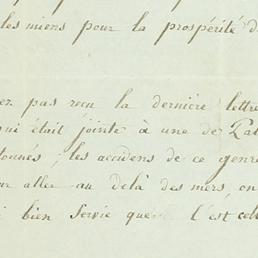 les miens pour la prospérité d
ez pas reçu la dernière lettre
ui était jointe à une de
tonnés ; les accidens de ce genre
ur aller au delà des mers, on
i bien servie que l'est cel